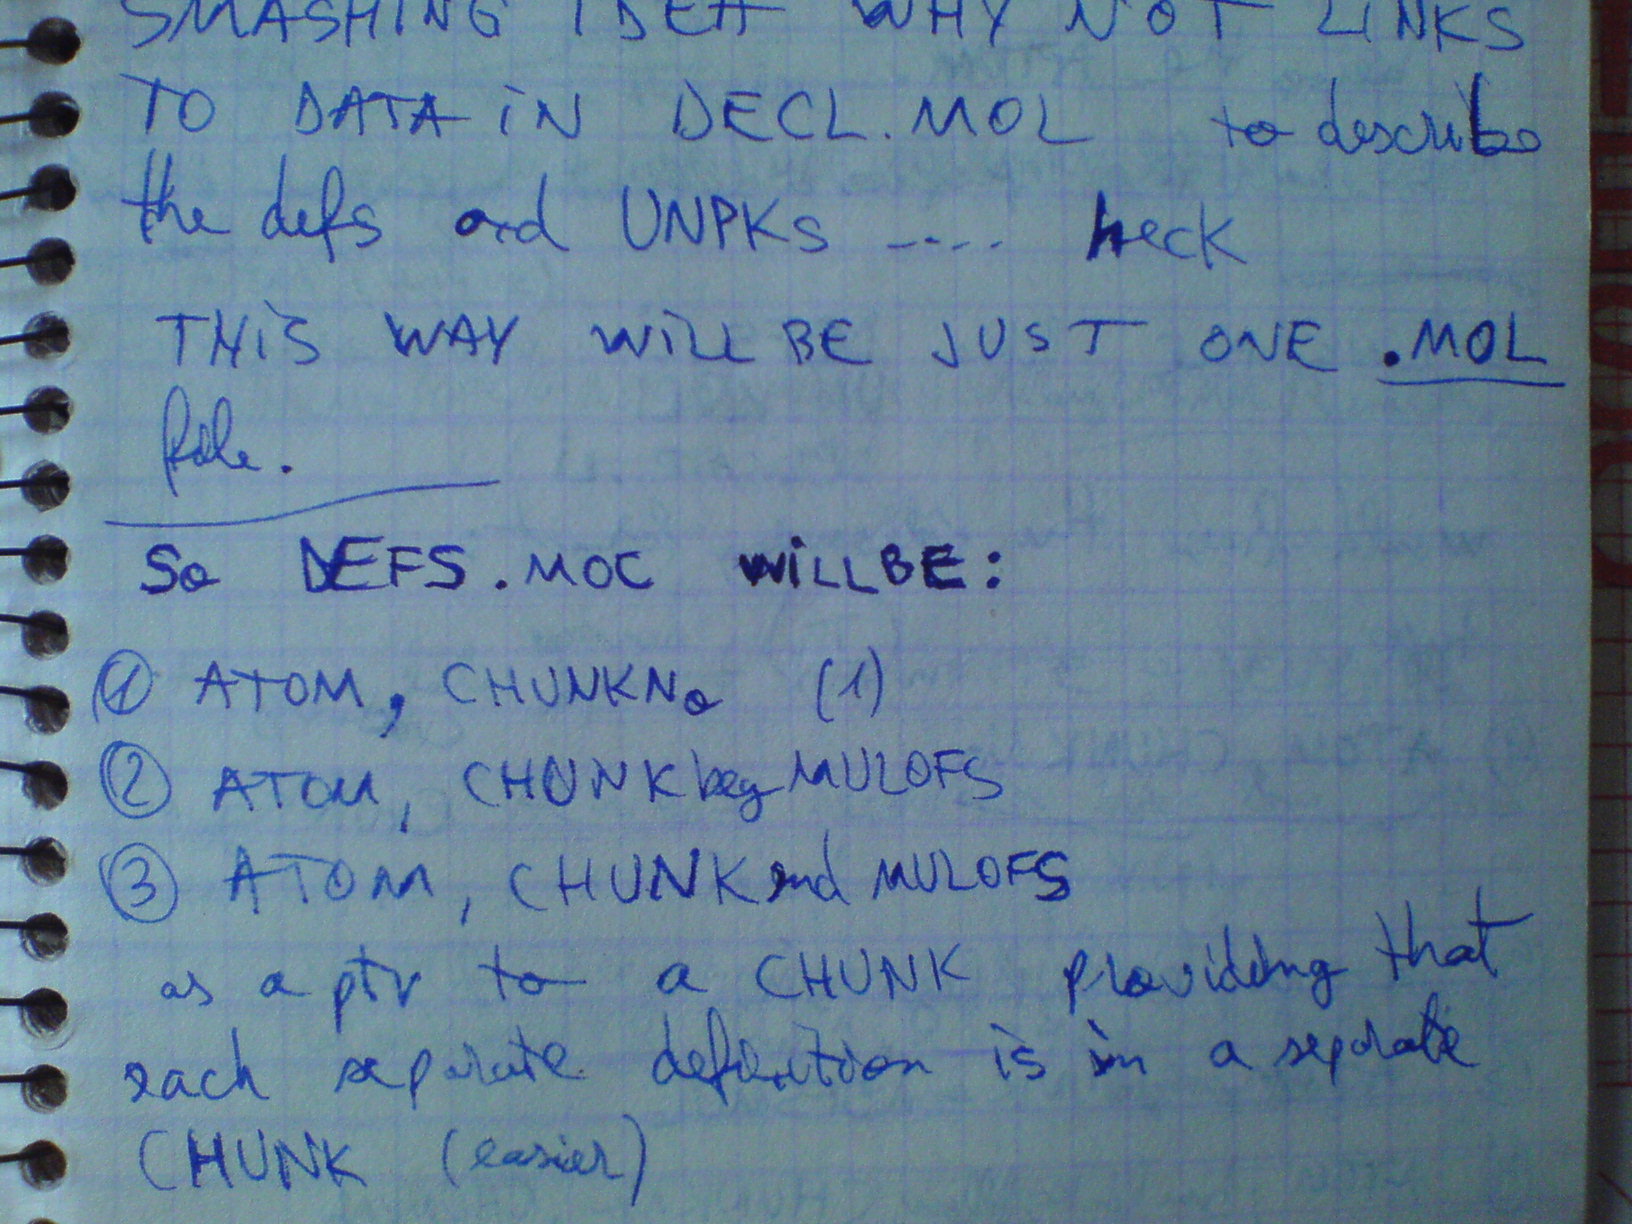 SMASHING IDEA WHY NOT LINKS
TO DATA IN DECL.MOL to describe
the defs and UNPKs .... heck
THiS WAY WiLL BE JUST ONE .MOL
file.
So DEFS.MOC WiLL BE:
① ATOM, CHUNKNo (1)
② ATOM, CHUNKbeg MULOFS
③ ATOM, CHUNKend MULOFS
as a ptr to a CHUNK providing that
each separate definition is in a separate
CHUNK (easier)